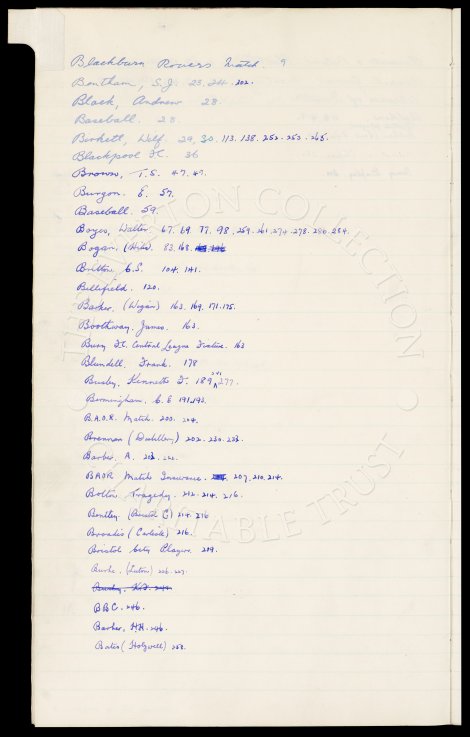 Blackburn Rovers Match. 9
Bentham, S.J. 23, 24. 202.
Black, Andrew 28.
Baseball. 28.
Birkett, Wilf. 29, 30. 113. 138. 252. 253. 265.
Blackpool F.C. 36
Brown, T.S. 47. 47.
Burgon. E. 57.
Baseball. 59.
Boyes, Walter. 67. 69. 77. 98, 259. 261. 274. 278. 280. 284.
Bogan, (Hibs). 83. 168.
Britton C.S. 104. 141.
Bellefield. 120.
Barker, (Wigan) 163. 169. 171. 175.
Boothway. James. 163.
Bury F.C. Central League Fixture. 163
Blundell, Frank. 178
Busby, Kenneth F. 189, 277.
Birmingham, C.E 191, 193.
B.A.O.R. Match. 200. 204.
Brennan (Distillery) 202. 230. 232.
Barber, A.
BAOR Match Insurance. 207. 210. 214.
Bolton Tragedy. 212. 214. 216.
Bentley (Bristol C) 214. 216
Broadis (Carlisle) 216.
Bristol City Players. 219.
Burke. (Luton) 226. 227.
BBC. 246.
Barker, H.H. 246.
Bates (Holywell) 252.
THE COLLECTION
CHARITABLE TRUST